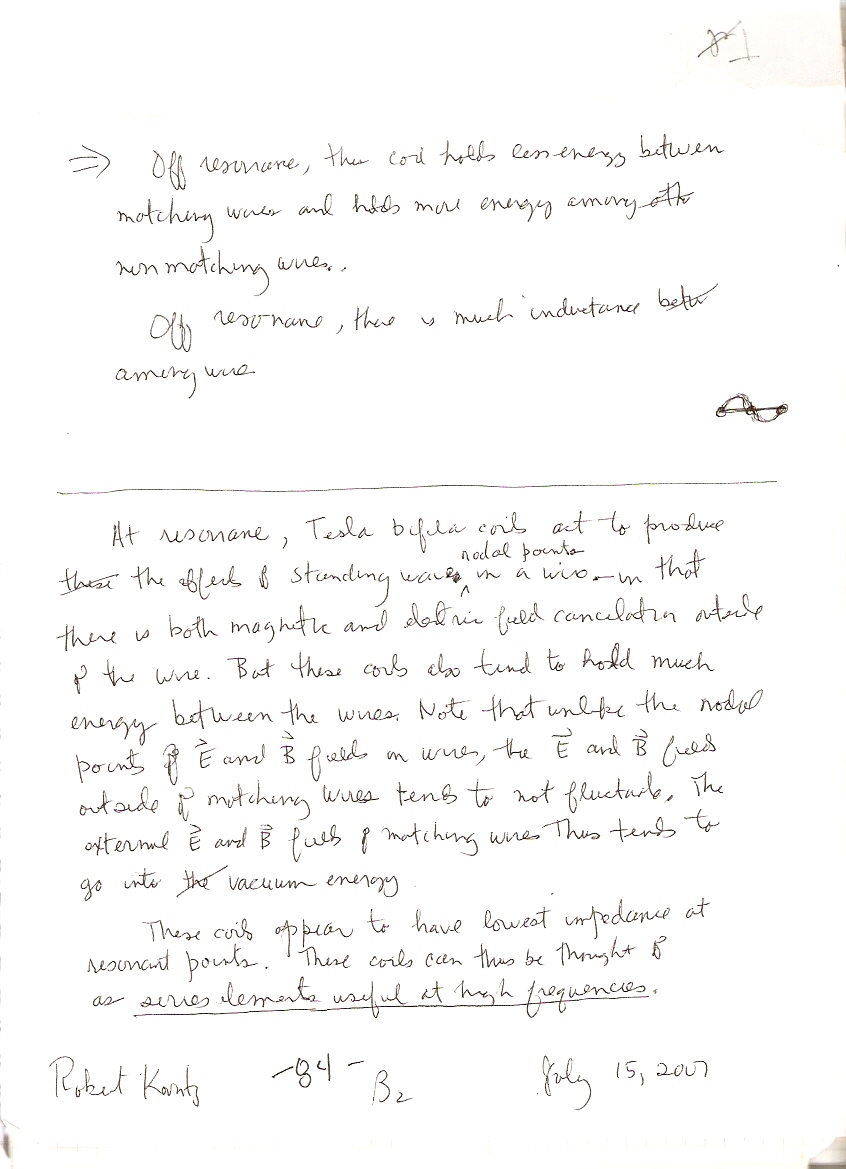 #1
⇒ Off resonane, the coil holds less energy between
matching wires and holds more energy among oth
non matching wires..
Off resonane, there is much inductance betw
among wire
At resonane, Tesla bifilar coils act to produce
these the effects of standing waves nodal points in a wire – in that
there is both magnetic and electric field cancelation outside
of the wire. But these coils also tend to hold much
energy between the wires. Note that unlike the nodal
points of E⃗ and B⃗ fields on wires, the E⃗ and B⃗ fields
outside of matching wires tends to not fluctuate. The
external E⃗ and B⃗ fields of matching wires Thus tends to
go into the vacuum energy.
These coils appear to have lowest impedance at
resonant points. These coils can thus be thought of
as series elements useful at high frequencies.
Robert -84- B2 July 15, 2007